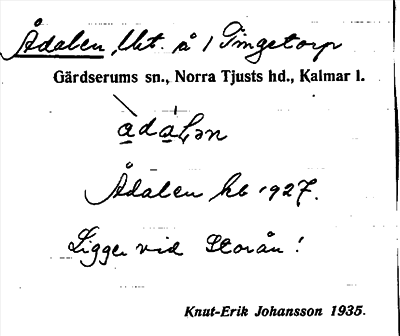 Ådalen, lht. å 1 Tingetorp
Gärdserums sn., Norra Tjusts hd., Kalmar l.
Ådalen hb 1927.
Ligger vid Storån!
Knut-Erik Johansson 1935.